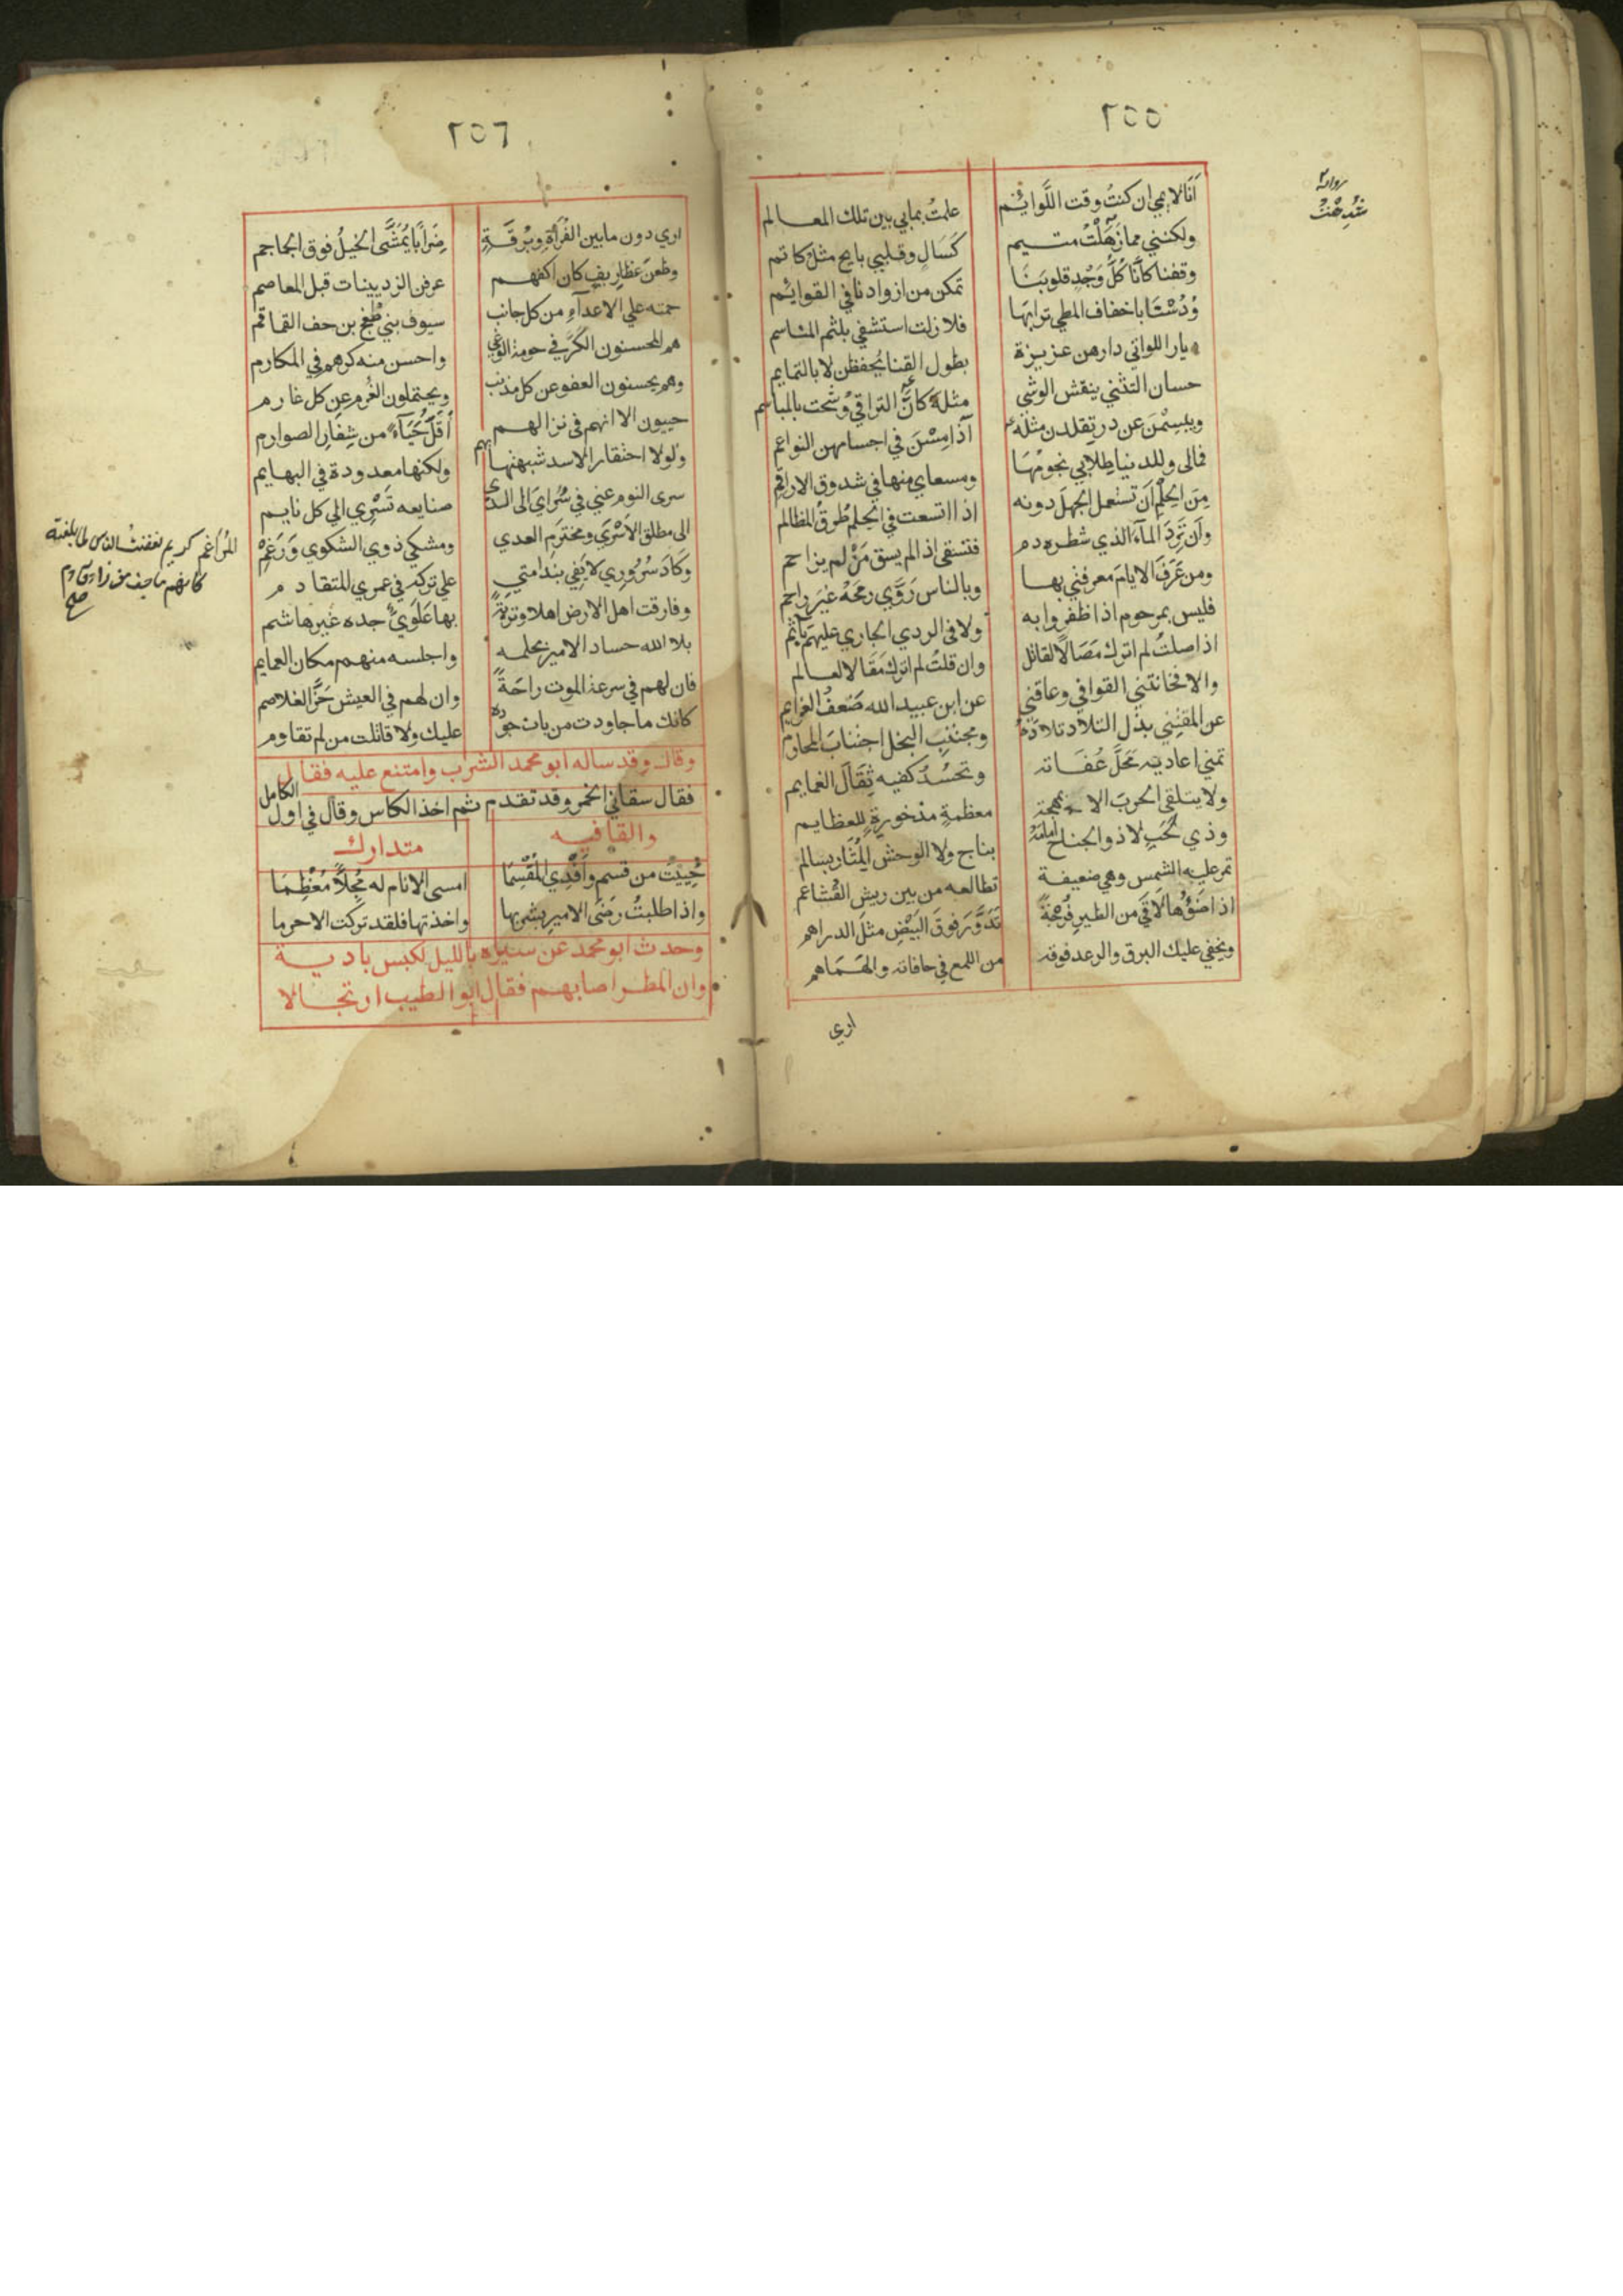 ٢٥٥
أنا لائمي ان كنتُ وقت اللَّوائم علمتُ بمابي بين تلك المعالم
ولكنني مما ذهلْتُ متيم كَسَالٍ وقلبي بايح مثلُ كاتم
وقفنا كانّا كُلُّ وَجْدِ قلوبنَا تمكن من ازوادنا في القوائم
ودُسْنَا باخفاف المطي ترابَها فلا زلت استشفي بلثم المناسم
ديار اللواتي دارهن عزيزة بطول القنا يُحفظن لا بالتمايم
حسان التثني ينقش الوشي مثلهُ اذا مِسْنَ في اجسامهن النواعم
ويبسِمْنَ عن در تقلدن مثلهُ كانَّ التراقي وُشّحت بالمباسم
فمالى وللدنيا طِلابي نجومُهَا ومسعاي منها في شدوق الاراقم
مِنَ الحِلْمِ اَن تستعمل الجهلَ دونه اذا اتسعت في الحِلم طُرقُ المظالم
وان تَرِدَ المآءَ الذي شطره دم فتسقى اذا لم يسق مَنْ لم يزاحم
ومن عَرَفَ الايامَ معرفتي بها وبالناس رَوَّي رمحَهُ غيرَ راحم
فليس بمرحوم اذا ظفروا به ولا في الردي الجاري عليهم بآثم
اذا صلتُ لم اترك مَصَالاً لقاتل وان قلتُ لم اترك مَقَالا لعالم
والا فخانتني القوافي وعاقني عن ابن عبيد الله ضَعفُ العزايم
عن المقتني بذل التلاد تلادَهُ ومجتنب البخل اجتنابَ المحارم
تمني اعاديه مَحَلَّ عُفَاته وتحسُدُ كفيه ثِقَالَ الغمايم
ولا يتلقي الحربَ الا بمهجة معظمةٍ مذخورةٍ للعظايم
وذي لَجَبٍ لا ذو الجناح امامَهُ بناج ولا الوحش المُثار بسالم
تمر عليه الشمس وهي ضعيفة تطالعه من بين ريش القشاعم
اذا ضَوْءُها لاَقَي من الطير فُرْجَةً تَدَوَّرَ فوقَ البَيْضِ مثلَ الدراهم
ويخفي عليك البرق والرعد فوقه من اللمع في حافاته والهَمَاهم
اري
روايه
شُدِهْتُ
٢٥٦
اري دون ما بين الفُراةِ وبُرقَةٍ ضِرَاباً يُمَشَّى الخيلُ فوق الجماجم
وطعنَ غطاريفٍ كان اكفهم عرفن الردينيات قبل المعاصم
حمته علي الاعدآءِ من كل جانب سيوف بني طُغج بن جف القماقم
هم المحسنون الكرَّ في حومة الوغي واحسن منه كرهم في المكارم
وهم يحسنون العفو عن كل مذنب ويحتملون الغُرم عن كل غارم
حييون الا انهم في نزالهم أقَلُّ حَيَآءً من شِفَارِ الصوارم
ولولا احتقار الاسد شبهتها بهم ولكنها معدودة في البهايم
سرى النوم عني في سُرَايَ الى الذي صنايعه تَسْرِي الي كل نايم
الى مطلق الاَسْرَي ومخترم العدي ومشكي ذوي الشكوي وَرَغمِ
المُرَاغم كريم نفضتُ الناس لما بلغته
كانهم ما جف من زاد قادم
صح
وكَادَ سُرُوري لا يَفِي بندامتي علي تركه في عمري المتقادم
وفارقت اهل الارض اهلا وتربةً بها عَلَويٌّ جده غيرهاشم
بلا الله حساد الامير بحلمه واجلسه منهم مكان العمايم
فان لهم في سرعة الموت راحةً وان لهم في العيش حَزَّ الغلاصم
كانك ما جاودت من بان جوده عليك ولا قاتلت من لم تقاوم
وقال وقد ساله ابو محمد الشرب وامتنع عليه فقال
فقال سقاني الخمر وقد تقدم ثم اخذ الكاس وقال في اول الكامل
والقافيه متدارك
حُيِيْتَ من قسم وأفدِي المُقْسِمَا امسى الانام له مُجِلاًّ مُعْظِمَا
واذا طلبتُ رضَى الامير بشربها واخذتها فلقد تركت الاحرما
وحدث ابو محمد عن مسيره بالليل لكبس بادية
وان المطر اصابهم فقال ابو الطيب ارتجالا